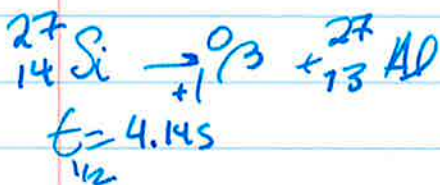 ²⁷₁₄Si → ⁰₊₁β + ²⁷₁₃Al
t₁/₂ = 4.14s